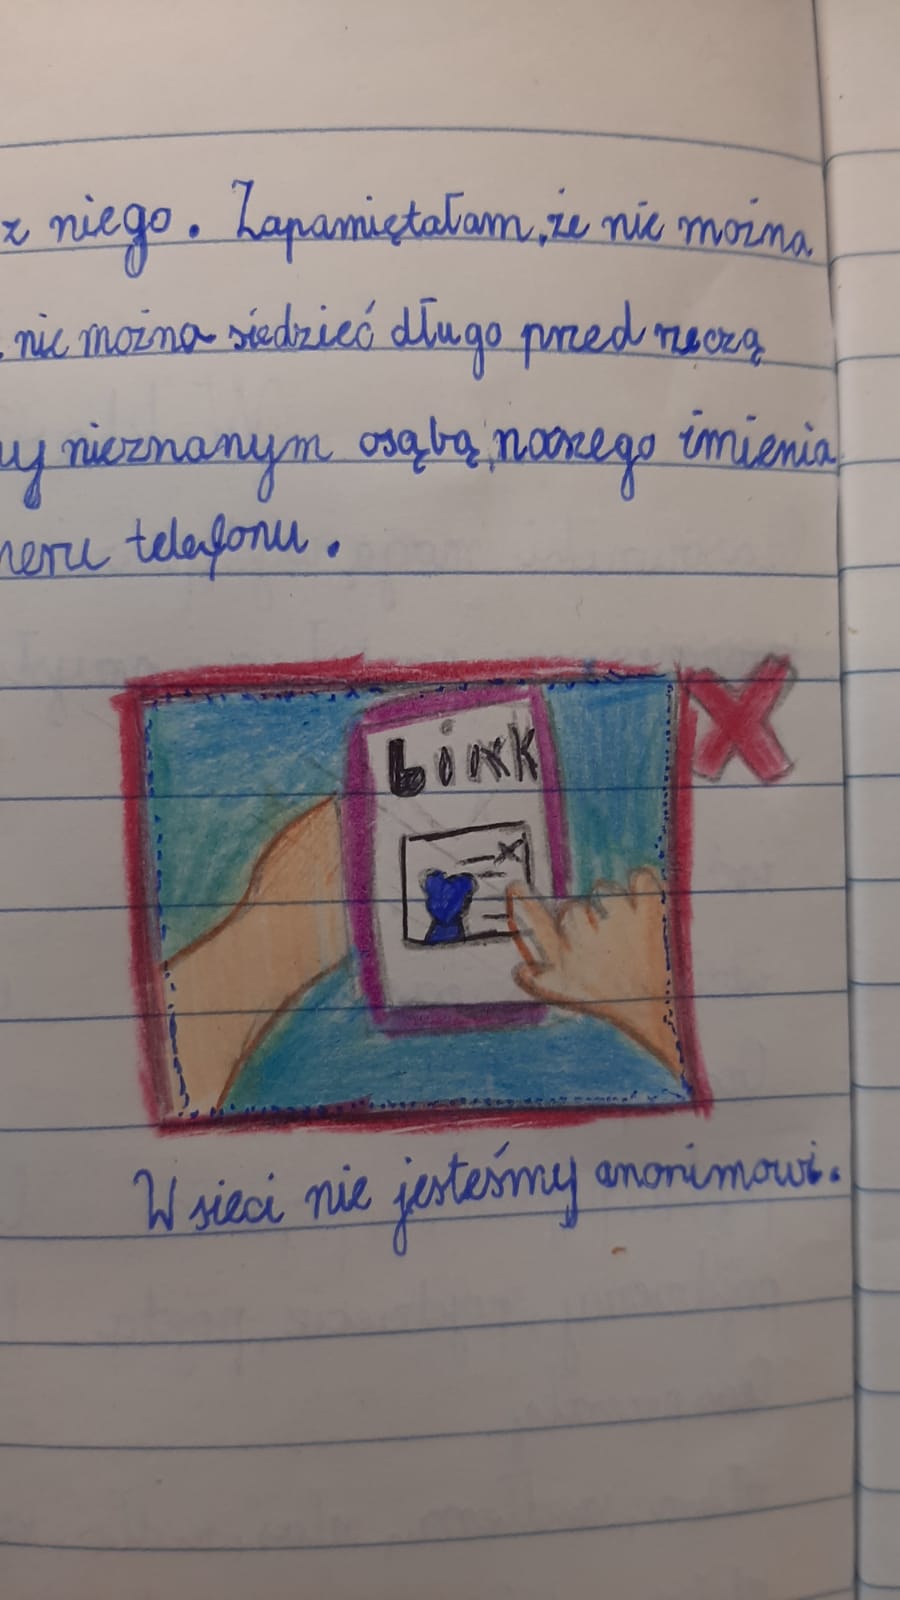 z niego. Zapamiętałam, że nie można
. nie można siedzieć długo przed rzeczą
y nieznanym osąbą, naszego imienia
neru telefonu.
Link
W sieci nie jesteśmy anonimowi.